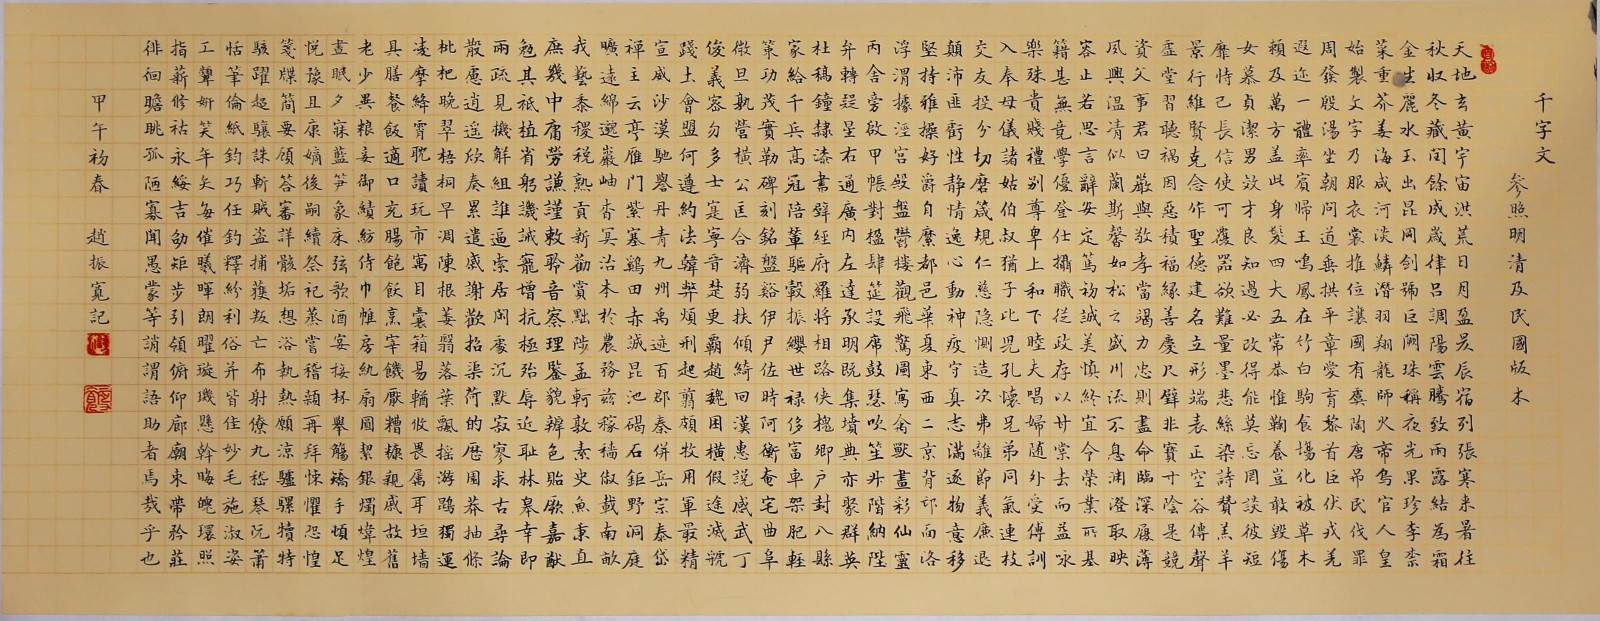 千字文
參照明清及民國版本
天地玄黃宇宙洪荒日月盈昃辰宿列張寒来暑往
秋収冬藏閏餘成歲律吕調陽雲騰致雨露結為霜
金生麗水玉出昆岡剑號巨阙珠稱夜光果珍李柰
菜重芥姜海咸河淡鱗潛羽翔龍師火帝鸟官人皇
始製文字乃服衣裳推位讓國有虞陶唐弔民伐罪
周發殷湯坐朝問道垂拱平章愛育黎首臣伏戎羌
遐迩一體率賓歸王鳴鳳在竹白駒食場化被草木
賴及萬方盖此身髮四大五常恭惟鞠養豈敢毀傷
女慕貞潔男效才良知過必改得能莫忘罔談彼短
靡恃己長信使可覆器欲難量墨悲絲染詩贊羔羊
景行維賢克念作聖德建名立形端表正空谷傳聲
虛堂習聽禍因惡積福緣善慶尺璧非寶寸陰是競
資父事君曰嚴與敬孝當竭力忠則盡命臨深履薄
夙興温凊似蘭斯馨如松之盛川流不息渊澄取映
容止若思言辭安定篤初誠美慎終宜令榮業所基
籍甚無竟學優登仕攝職從政存以甘棠去而益咏
樂殊貴賤禮别尊卑上和下睦夫唱婦随外受傅訓
入奉母儀諸姑伯叔猶子比兒孔懷兄弟同氣連枝
交友投分切磨箴規仁慈隐惻造次弗離節義廉退
顛沛匪虧性静情逸心動神疲守真志滿逐物意移
堅持雅操好爵自縻都邑華夏東西二京背邙面洛
浮渭據涇宫殿盤鬱樓觀飛驚圖寫禽獸畫彩仙靈
丙舍旁啟甲帳對楹肆筵設席鼓瑟吹笙升階納陛
弁轉疑星右通廣内左達承明既集墳典亦聚群英
杜稿鐘隸漆書壁經府羅將相路俠槐卿户封八縣
家給千兵高冠陪輦驅轂振纓世禄侈富車駕肥輕
策功茂實勒碑刻銘盤谿伊尹佐時阿衡奄宅曲阜
微旦孰營桓公匡合濟弱扶傾綺回漢惠説感武丁
俊義密勿多士寔寧晋楚更霸趙魏困横假途滅虢
踐土會盟何遵約法韓弊煩刑起翦頗牧用軍最精
宣威沙漠馳譽丹青九州禹迹百郡秦併岳宗泰岱
禪主云亭雁门紫塞鷄田赤誠昆池碣石鉅野洞庭
曠遠綿邈巖岫杳冥治本於農務兹稼穡俶載南畝
我藝黍稷税熟貢新勸賞黜陟孟軻敦素史魚秉直
庶幾中庸勞謙謹敕聆音察理鑒貌辨色貽厥嘉猷
勉其祗植省躬譏誡寵增抗極殆辱近耻林皋幸即
兩疏見機解組誰逼索居閑處沉默寂寥求古尋論
散慮逍遥欣奏累遣慼謝歡招渠荷的歷園莽抽條
枇杷晚翠梧桐早凋陳根萎翳落葉飄摇游鹍獨運
凌摩絳霄耽讀玩市寓目囊箱易輶攸畏属耳垣墙
具膳餐飯適口充腸飽飫烹宰饑厭糟糠親戚故舊
老少異粮妾御績紡侍巾帷房紈扇圓絜銀燭煒煌
晝眠夕寐藍笋象床弦歌酒宴接杯舉觴矯手頓足
悦豫且康嫡後嗣續祭祀蒸嘗稽顙再拜悚懼恐惶
箋牒简要顧答審詳骸垢想浴執熱願涼驢騾犢特
駭躍超驤誅斬賊盗捕獲叛亡布射僚丸嵇琴阮簫
恬筆倫紙鈞巧任釣釋紛利俗并皆佳妙毛施淑姿
工顰妍笑年矢每催曦暉朗曜璇璣懸斡晦魄環照
指薪修祜永綏吉劭矩步引領俯仰廊廟束帶矜莊
徘徊瞻眺孤陋寡聞愚蒙等誚謂語助者焉哉乎也
甲午初春 趙振寬記